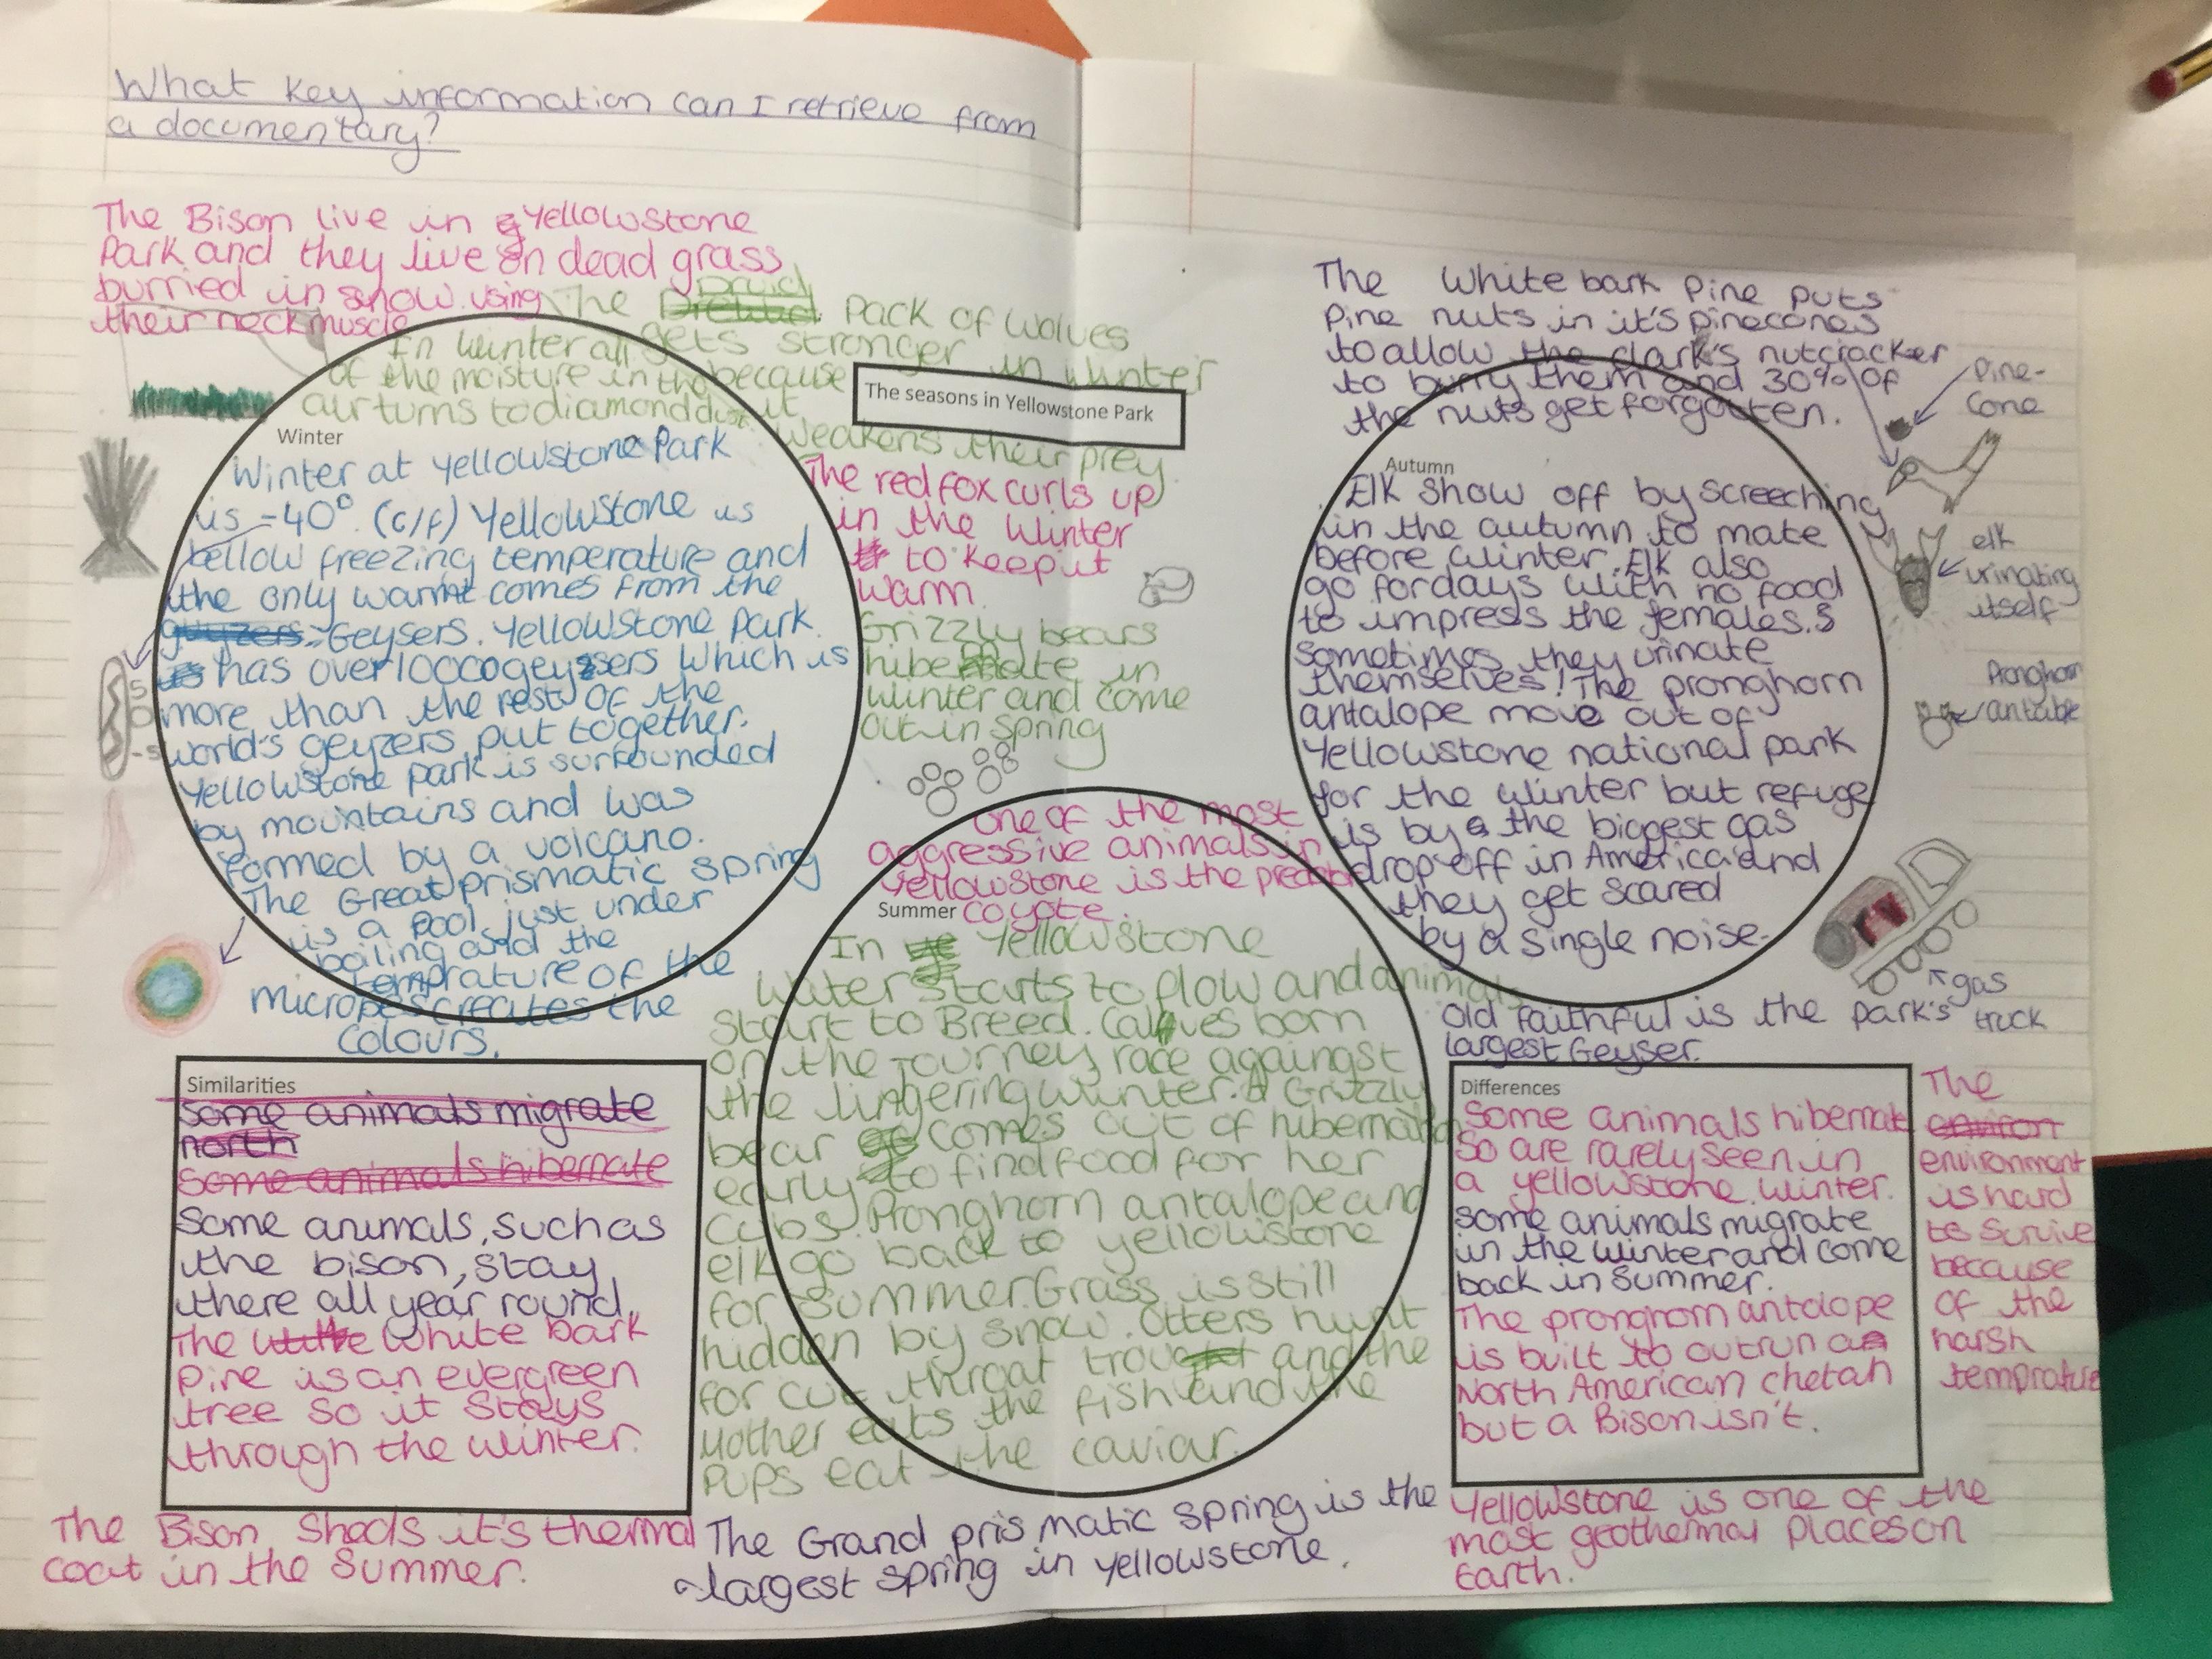 What key information can I retrieve from
a documentary?
The Bison live in Yellowstone
Park and they live on dead grass
burried in snow using
their neck muscle
The Druid Pack of wolves
gets stronger in winter
because it
weakens their prey.
In winter all
of the moisture in the
air turns to diamond dust
The seasons in Yellowstone Park
Winter
Winter at Yellowstone Park
is -40° (c/f) Yellowstone is
bellow freezing temperature and
the only warmt comes from the
Geysers. Yellowstone Park
has over 10000 geysers which is
more than the rest of the
world's geyzers put together.
Yellowstone park is surrounded
by mountains and was
formed by a volcano.
The Great prismatic spring
is a pool just under
boiling and the
temprature of the
micropes creates the
colours.
The red fox curls up
in the Winter
to keep it
warm.
Grizzly bears
hibernate in
winter and come
out in spring
The White bark pine puts
Pine nuts in it's pinecones
to allow the clark's nutcracker
to burry them and 30% of
the nuts get forgotten.
Pine-
Cone
Autumn
Elk show off by screeching
in the autumn to mate
before winter. Elk also
go for days with no food
to impress the females. &
sometimes they urinate
themselves! The pronghorn
antalope move out of
Yellowstone national park
for the winter but refuge
is by the biggest gas
drop off in America and
they get scared
by a single noise.
elk
urinating
itself
Pronghorn
gas
truck
Old faithful is the park's
largest Geyser.
One of the most
aggressive animals in
Yellowstone is the
coyote.
Summer
In Yellowstone
Water starts to flow and animals
start to Breed. Calves born
on the journey race aggaingst
the lingering winter. A Grizzly
bear comes out of hibernation
early to find food for her
cubs. Pronghorn antalope and
elk go back to yellowstone
for Summer. Grass is still
hidden by snow. Otters hunt
for cut throat trout and the
Mother eats the fish and the
Pups eat the caviar.
Similarities
Some animals migrate
north
Some animals hibernate
Some animals, such as
the bison, stay
there all year round.
The White bark
Pine is an evergreen
tree so it stays
through the winter.
Differences
Some animals hibernate
So are rarely seen in
a yellowstone winter.
Some animals migrate
in the winter and come
back in summer.
The pronghorn antalope
is built to outrun a
North American chetah
but a Bison isn't.
The
environment
is hard
to survive
because
of the
harsh
temprature
The Bison sheds it's thermal
coat in the Summer.
The Grand prismatic spring is the
largest spring in yellowstone.
Yellowstone is one of the
most geothermal places on
Earth.